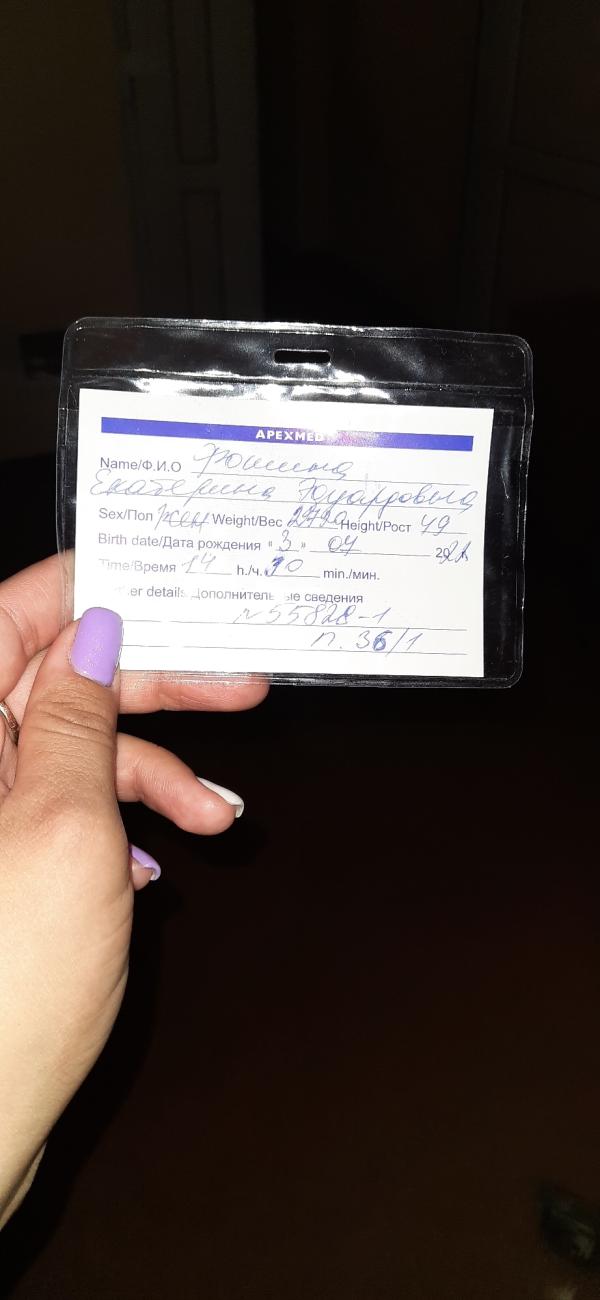 APEXMED
Name/Ф.И.О Фомина
Екатерина Эдуардовна
Sex/Пол жен Weight/Вес 2790 Height/Рост 49
Birth date/Дата рождения "3" 07 2021
Time/Время 14 h./ч. 30 min./мин.
details Дополнительные сведения
№55828-1
п. 36/1